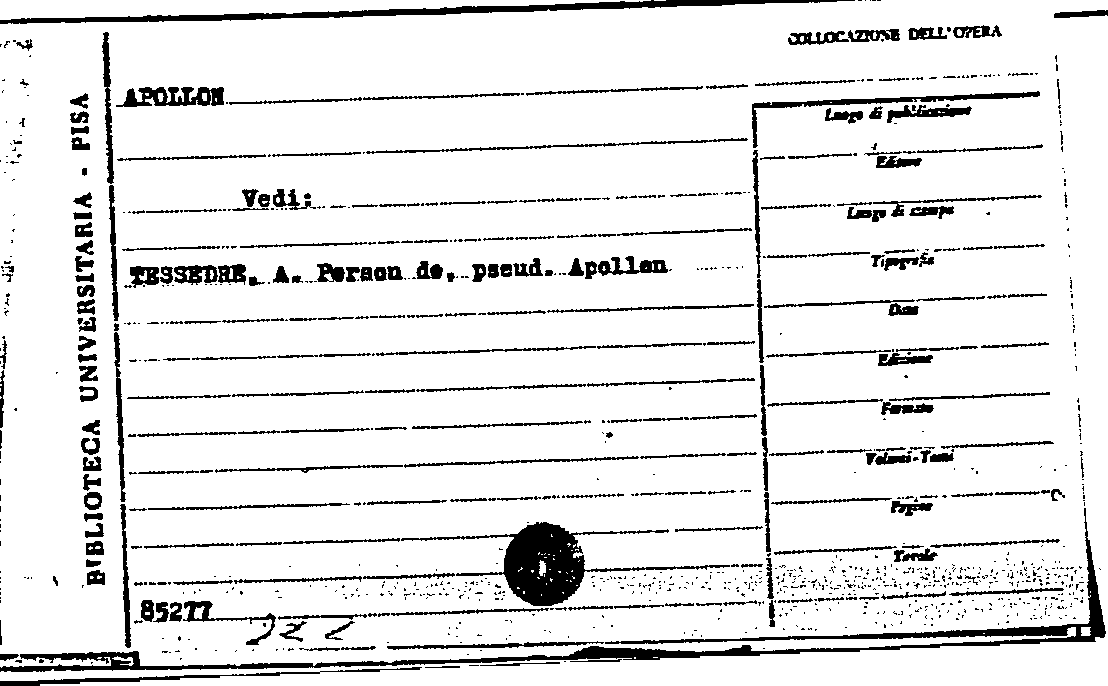 COLLOCAZIONE DELL'OPERA
BIBLIOTECA UNIVERSITARIA - PISA
APOLLON
Vedi:
TESSEDRE, A. Person de, pseud. Apollon
85277
Luogo di pubblicazione
Editore
Luogo di stampa
Tipografia
Data
Edizione
Formato
Volumi-Tomi
Pagine
Tavole